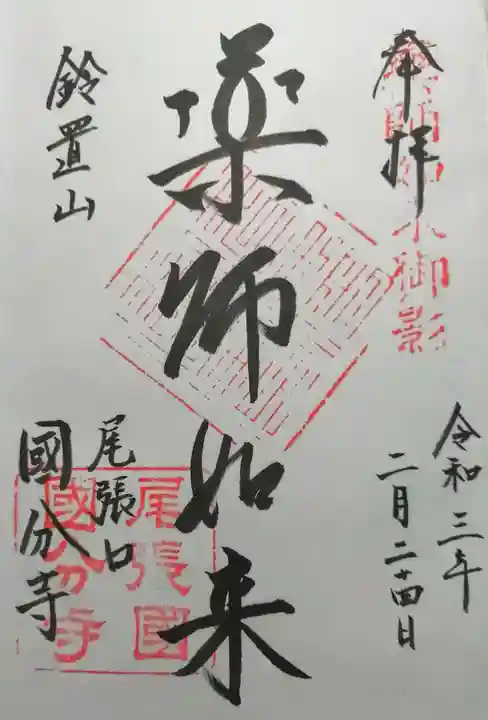 奉拝
薬師如来御影
令和三年
二月二十四日
薬師如来
鈴置山
尾張国
國分寺
尾張國
國分寺